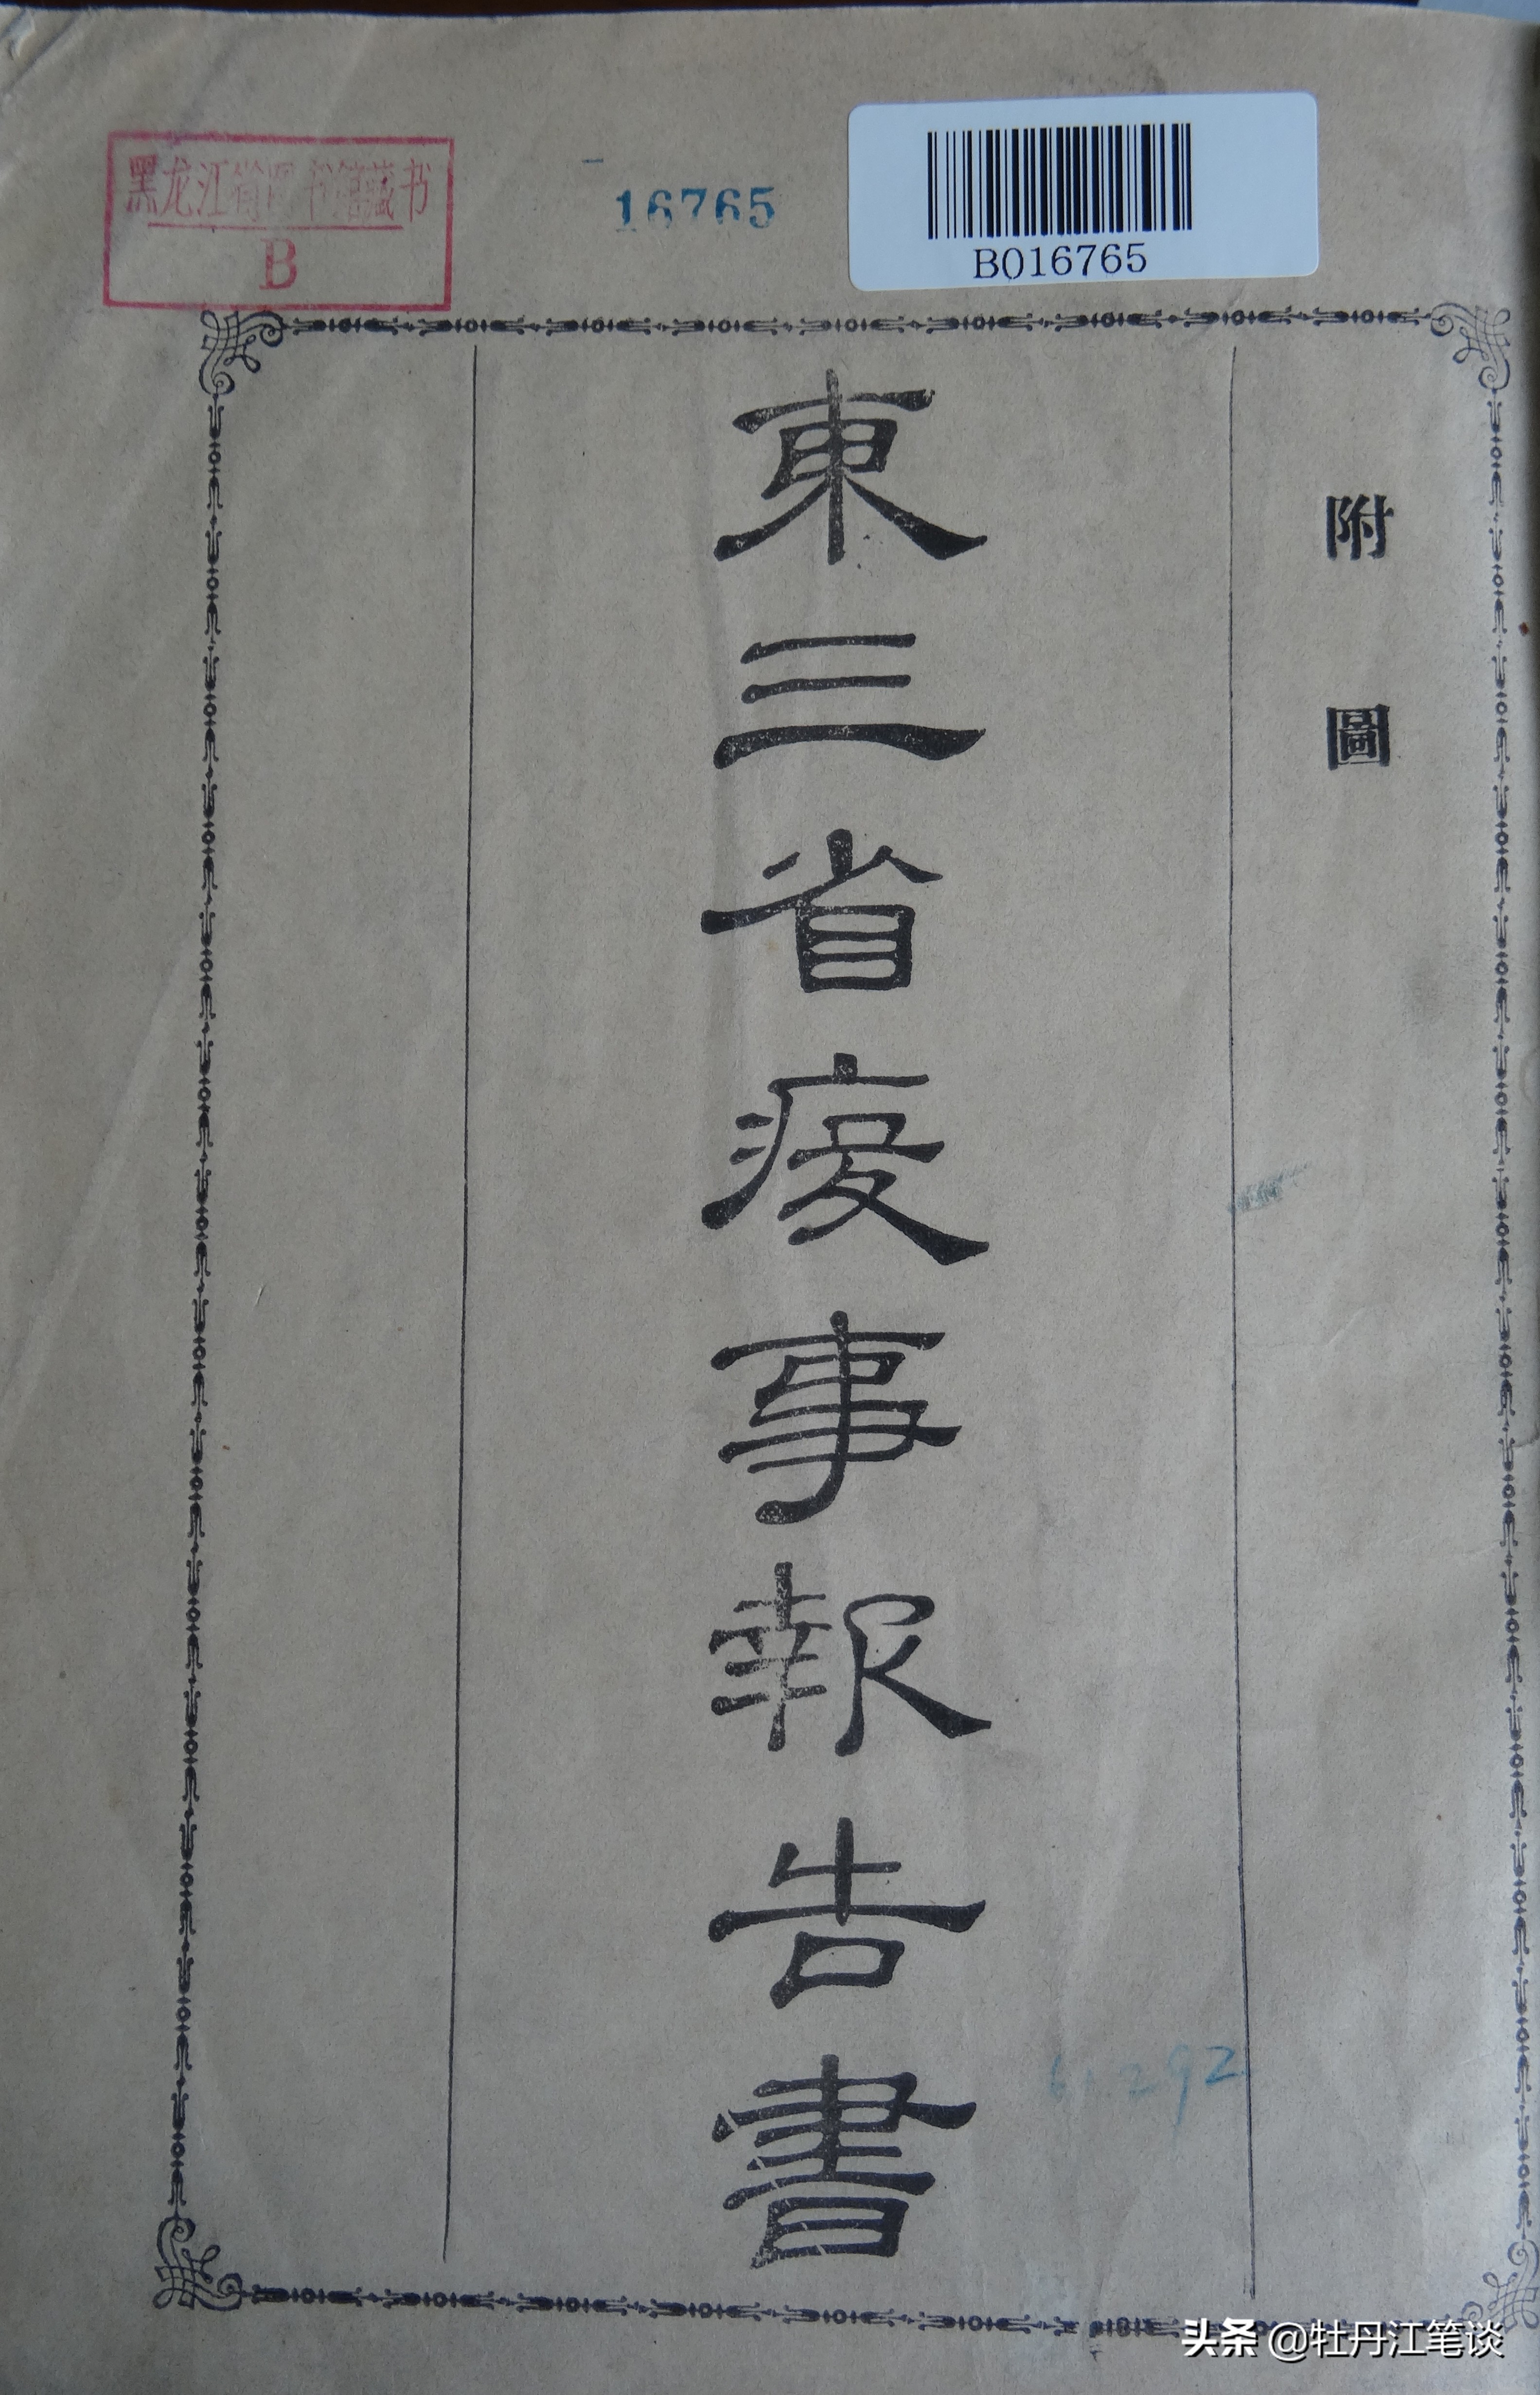 黑龙江省图书馆藏书
B
16765
B016765
附圖
東三省疫事報告書
61.292
头条 @牡丹江笔谈